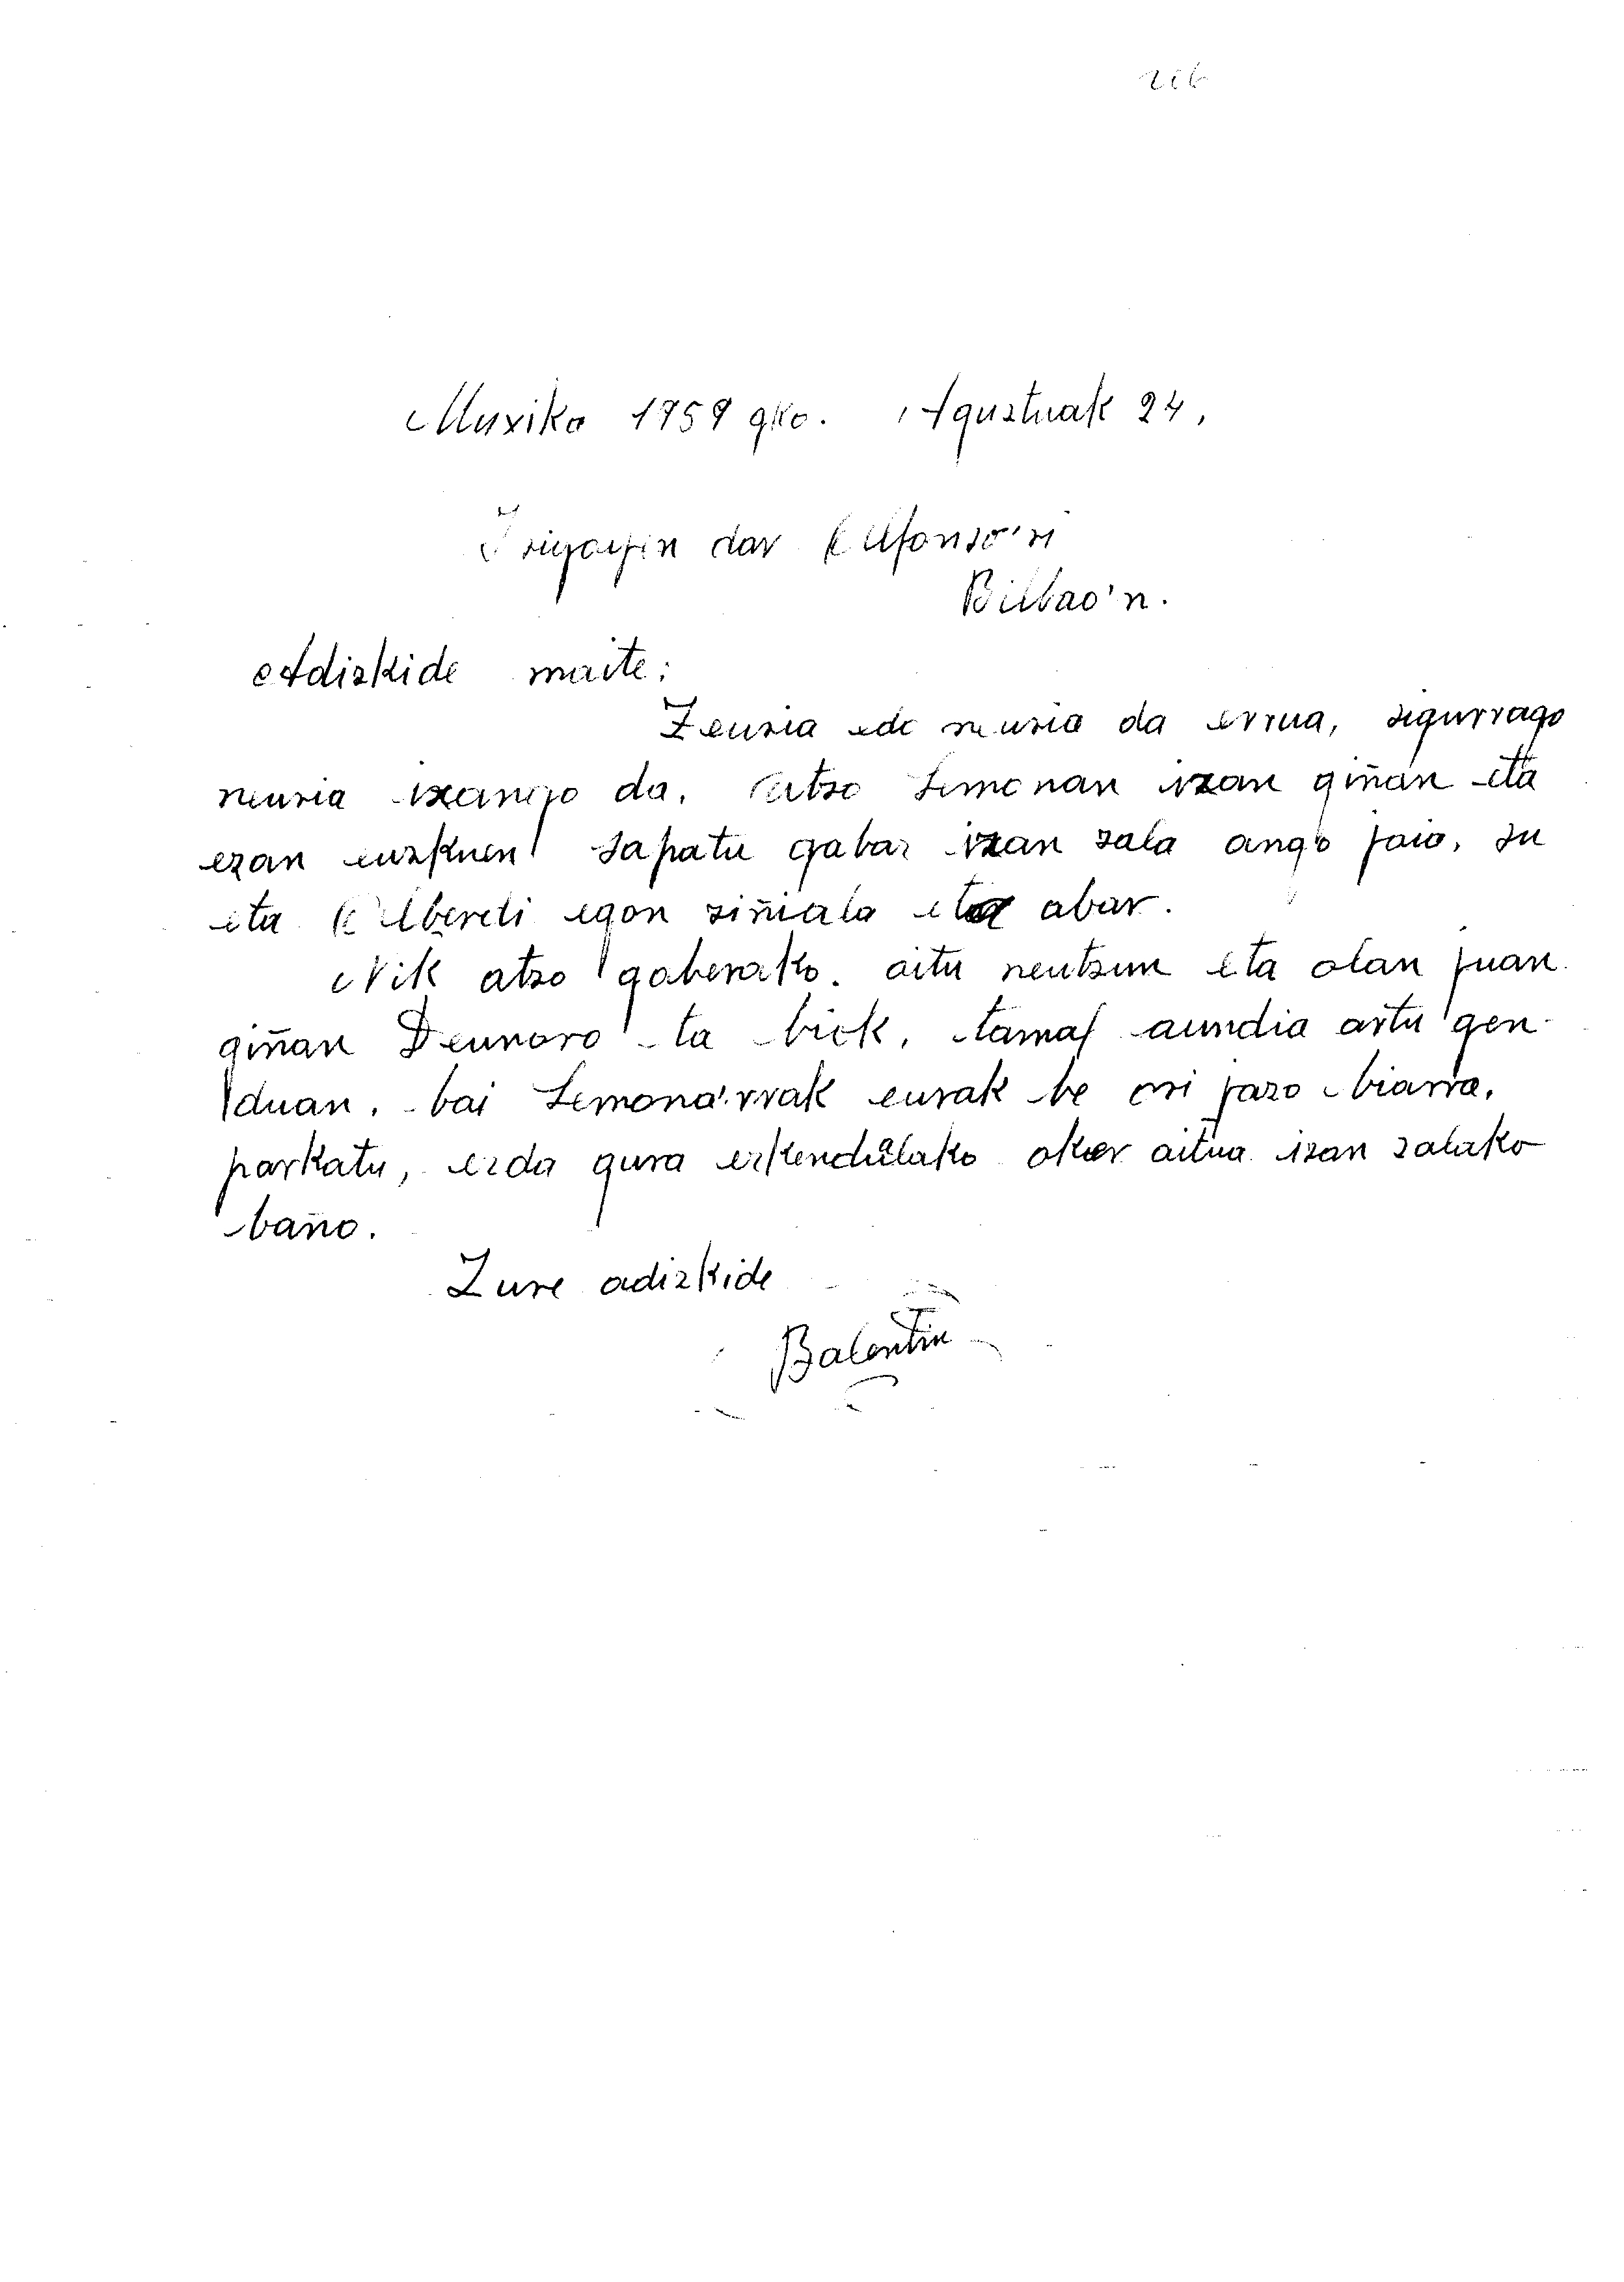 Muxika 1959 gko. Agustuak 24,
Irigoyen dar Alfonso'ri
Bilbao'n.
Adizkide maite:
Zeuria edo neuria da errua, sigurrago
neuria izango da. Atzo Lemonan izan giñan eta
ezan euzkuen zapatu gabaz izan zala ango jaia, zu
eta Albeŕdi egon ziñiala eta abar.
Nik atzo gaberako aitu neutzun eta olan juan
giñan Deunoro ta biok, tamal aundia artu gen-
duan, bai Lemona'rrak eurak be ori jazo biarra,
parkatu, ezda gura ezkendulako oker aitua izan zalako
baño.
Zure adizkide
Balentin